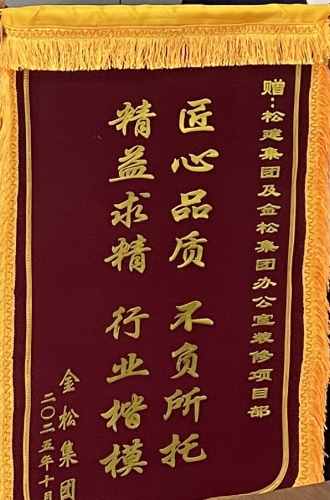 赠：松建集团及金松集团办公室装修项目部
匠心品质 不负所托
精益求精 行业楷模
金松集团
二〇二五年十月